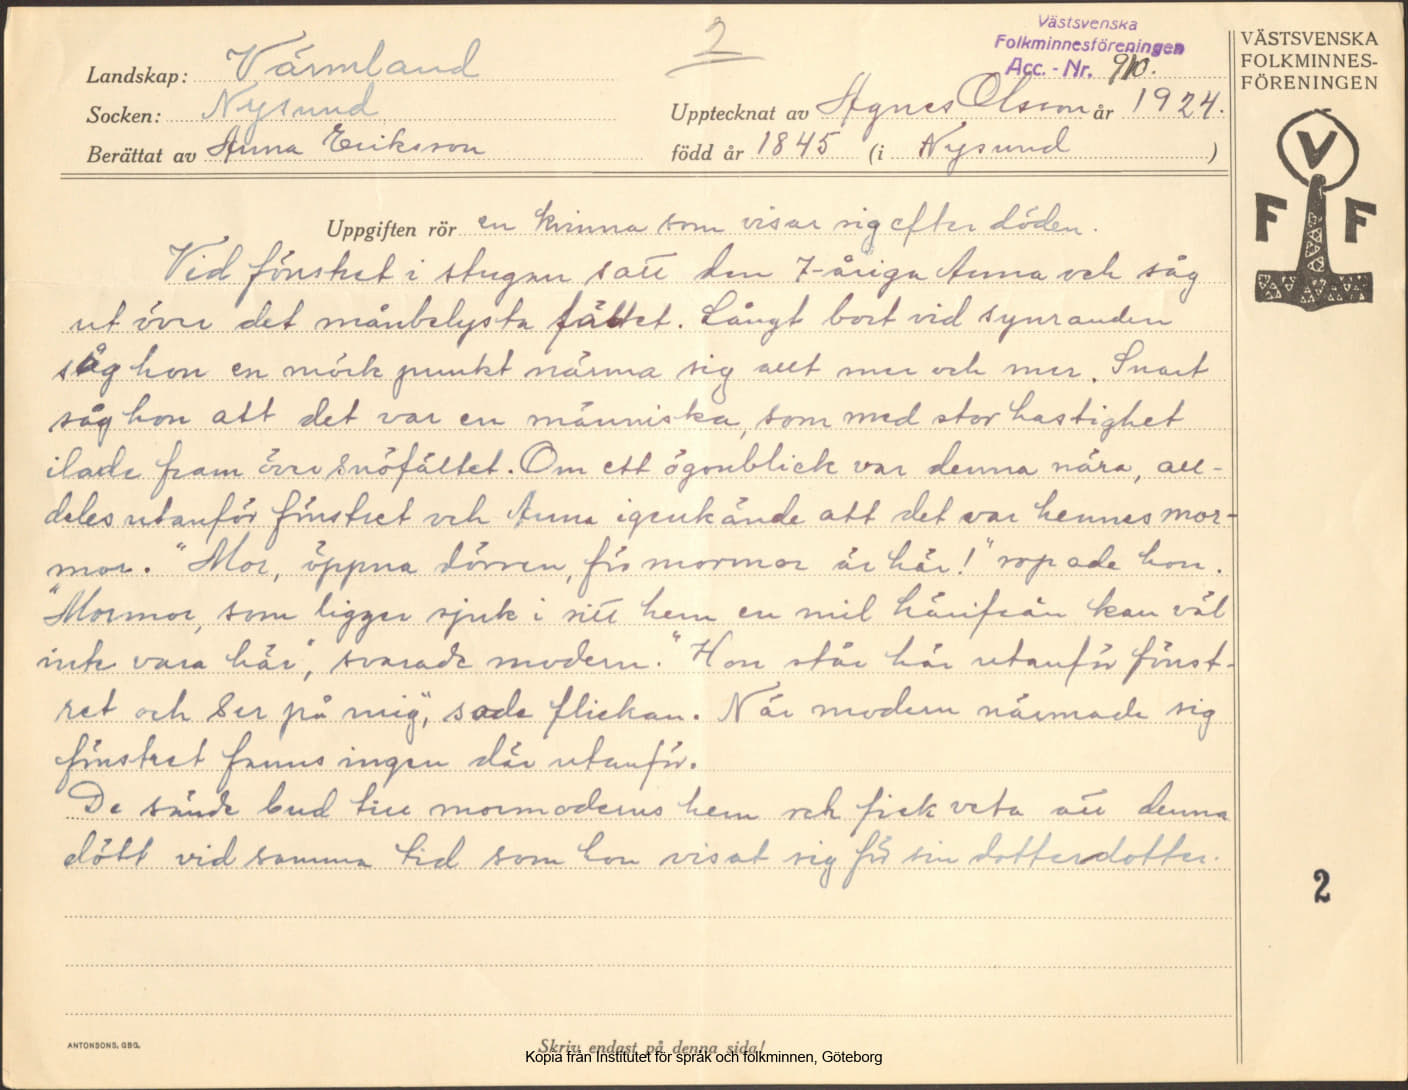 2
Västsvenska
Folkminnesföreningen
Acc. - Nr. 910.
VÄSTSVENSKA
FOLKMINNES-
FÖRENINGEN
V
F F
Landskap: Värmland
Socken: Nysund
Upptecknat av Agnes Olsson år 1924.
Berättat av Anna Eriksson född år 1845 (i Nysund )
Uppgiften rör en kvinna som visar sig efter döden.
Vid fönstret i stugan satt den 7-åriga Anna och såg
ut över det månbelysta fältet. Långt bort vid synranden
såg hon en mörk punkt närma sig allt mer och mer. Snart
såg hon att det var en människa, som med stor hastighet
ilade fram över snöfältet. Om ett ögonblick var denna nära, all-
deles utanför fönstret och Anna igenkände att det var hennes mor-
mor. "Mor, öppna dörren, för mormor är här!" ropade hon.
"Mormor, som ligger sjuk i sitt hem en mil härifrån kan väl
inte vara här", svarade modern. "Hon står här utanför fönst-
ret och ser på mig", sade flickan. När modern närmade sig
fönstret fanns ingen där utanför.
De sände bud till mormoderns hem och fick veta att denna
dött vid samma tid som hon visat sig för sin dotterdotter.
2
ANTONSONS, GBG.
Skriv endast på denna sida!
Kopia från Institutet för språk och folkminnen, Göteborg